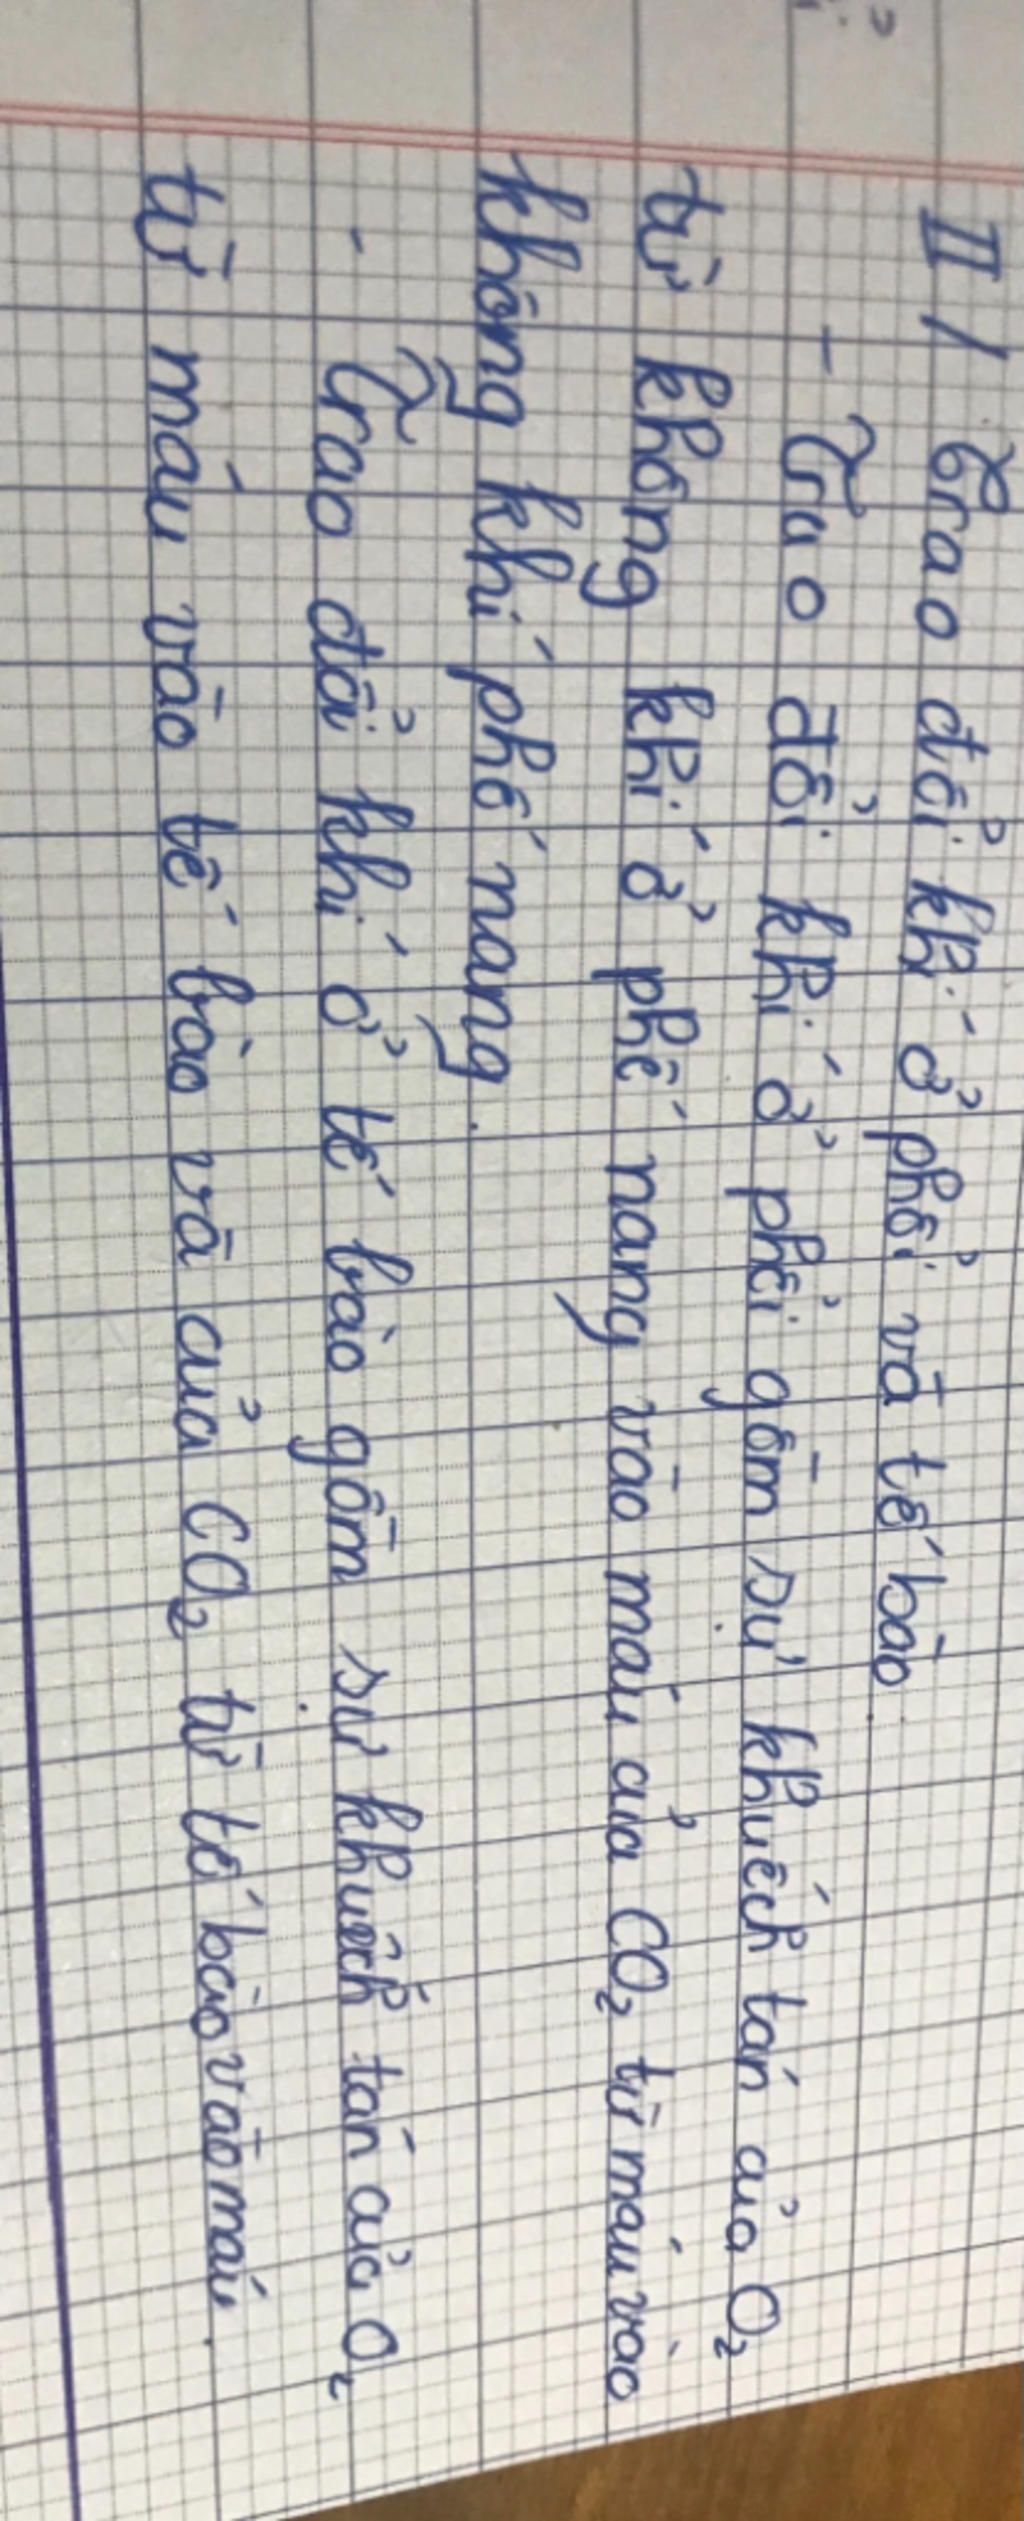 II/ Trao đổi khí ở phổi và tế bào.
- Trao đổi khí ở phổi gồm sự khuếch tán của O₂
từ không khí ở phế nang vào máu của CO₂ từ máu vào
không khí phố nang.
- Trao đổi khí ở tế bào gồm sự khuếch tán của O₂
từ máu vào tế bào và của CO₂ từ tế bào vào máu.